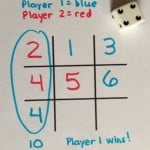 Player 1 = blue
Player 2 = red
2 1 3
4 5 6
4
10 Player 1 wins!